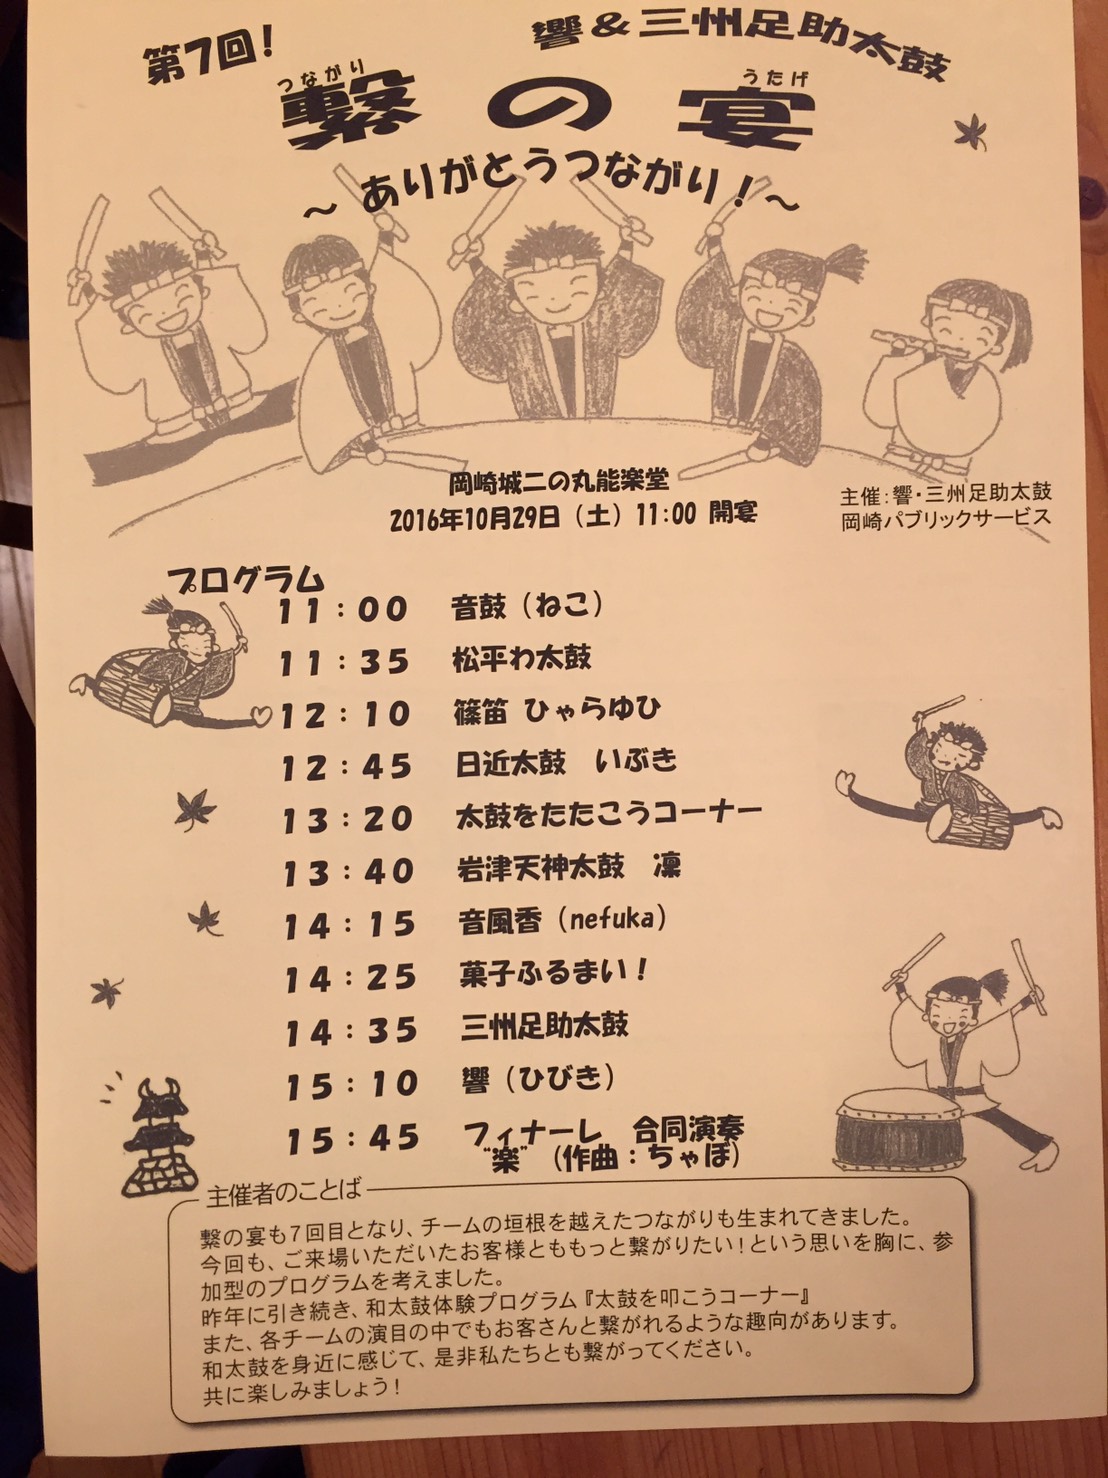 第7回!
響&三州足助太鼓
つながり うたげ
繋の宴
～ありがとうつながり!～
岡崎城二の丸能楽堂
2016年10月29日(土)11:00 開宴
主催:響・三州足助太鼓
岡崎パブリックサービス
プログラム
11:00 音鼓(ねこ)
11:35 松平わ太鼓
12:10 篠笛 ひゃらゆひ
12:45 日近太鼓 いぶき
13:20 太鼓をたたこうコーナー
13:40 岩津天神太鼓 凜
14:15 音風香(nefuka)
14:25 菓子ふるまい!
14:35 三州足助太鼓
15:10 響(ひびき)
15:45 フィナーレ 合同演奏
"楽"(作曲:ちゃぼ)
主催者のことば
繋の宴も7回目となり、チームの垣根を越えたつながりも生まれてきました。
今回も、ご来場いただいたお客様とももっと繋がりたい!という思いを胸に、参
加型のプログラムを考えました。
昨年に引き続き、和太鼓体験プログラム『太鼓を叩こうコーナー』
また、各チームの演目の中でもお客さんと繋がれるような趣向があります。
和太鼓を身近に感じて、是非私たちとも繋がってください。
共に楽しみましょう!